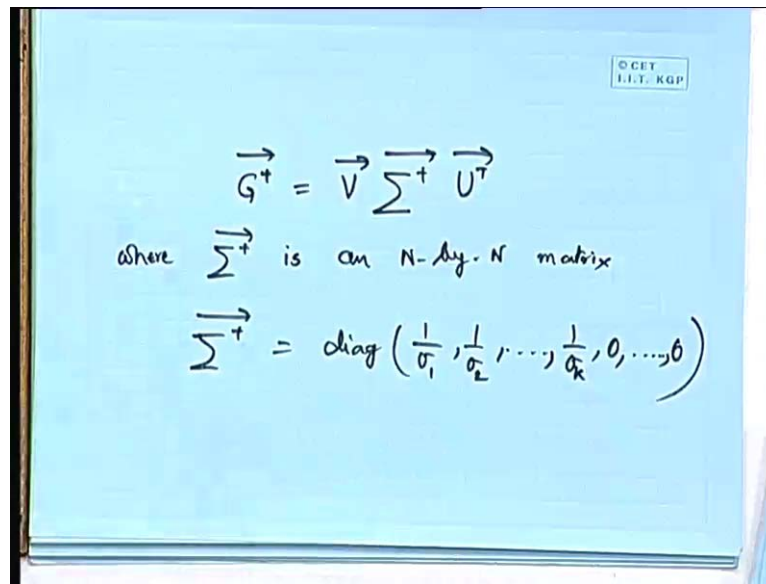 © CET
I.I.T. KGP
G⁺ = V Σ⁺ Uᵀ
where Σ⁺ is an N-by-N matrix
Σ⁺ = diag (1/σ₁, 1/σ₂, ...., 1/σₖ, 0, ...., 0)